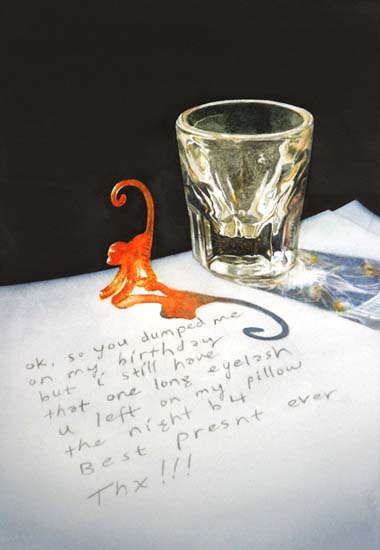 ok. so you dumped me
on my birthday
but i still have
that one long eyelash
u left on my pillow
the night b4
Best presnt ever
Thx!!!